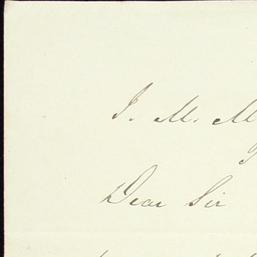 J. M. M
Dear Sir